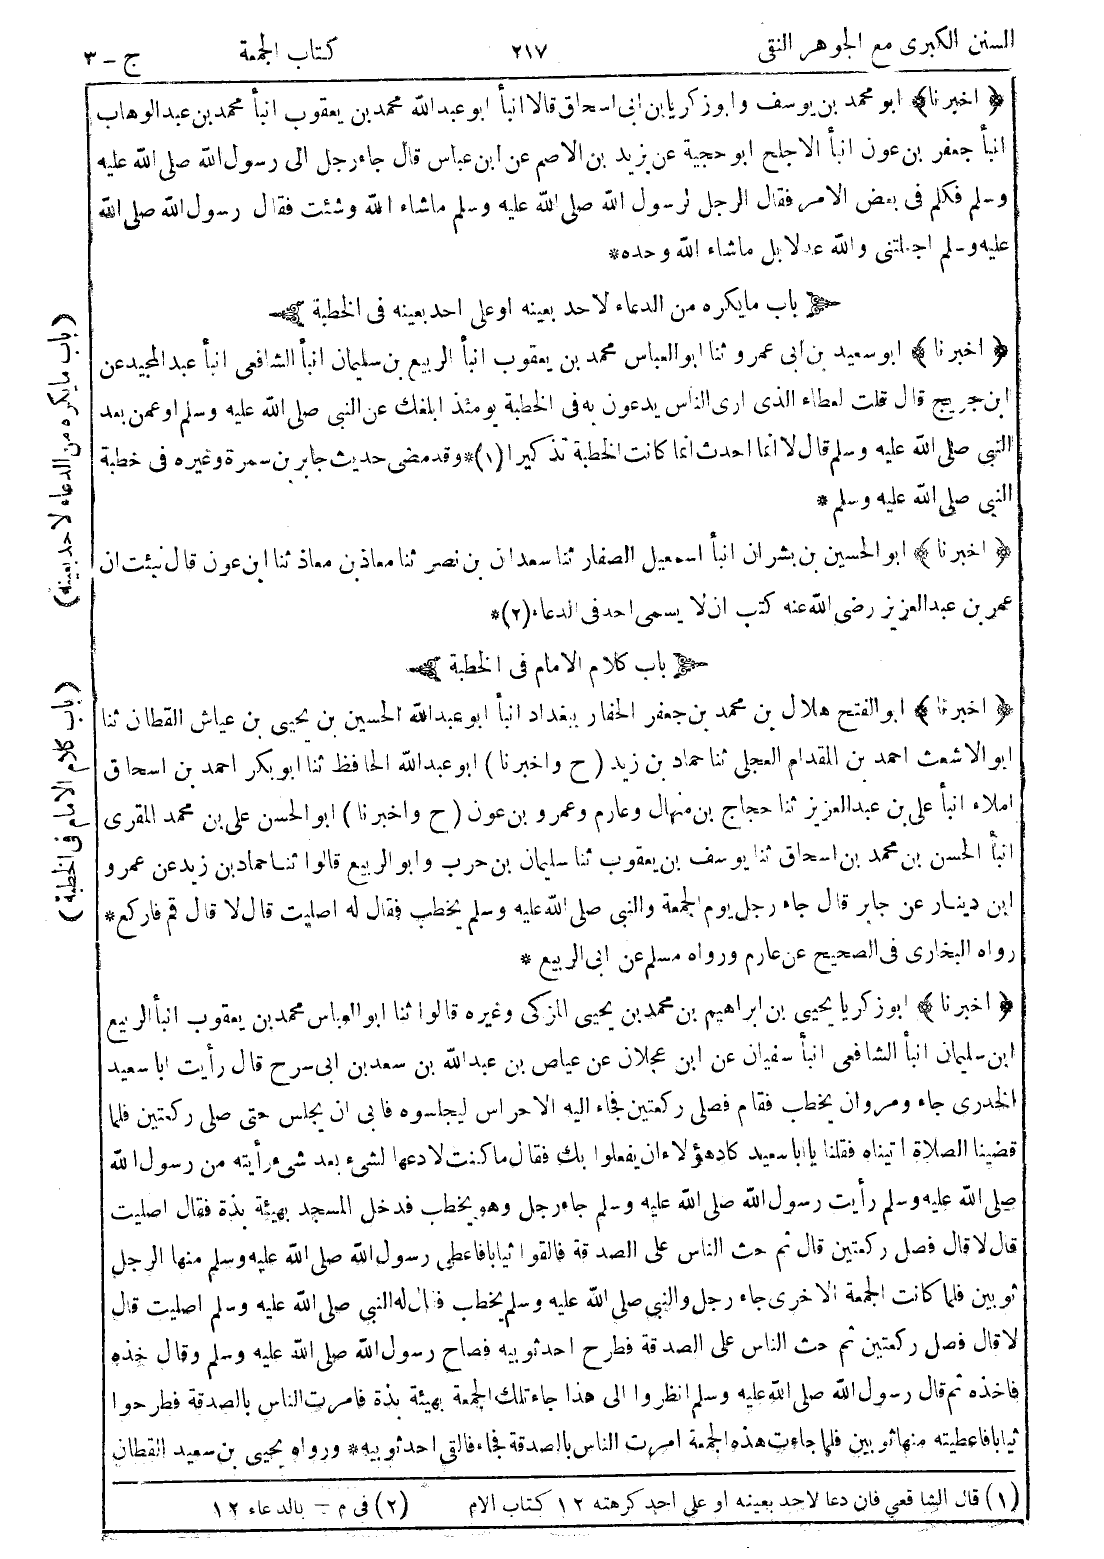 السنن الكبرى مع الجوهر النقى ٢١٧ كتاب الجمعة ج - ٣
﴿ اخبرنا ﴾ ابو محمد بن يوسف وابوزكريا بن ابى اسحاق قالا انبأ ابو عبدالله محمد بن يعقوب انبأ محمد بن عبدالوهاب
انبأ جعفر بن عون انبأ الاجلح ابو حجية عن يزيد بن الاصم عن ابن عباس قال جاء رجل الى رسول الله صلى الله عليه
وسلم فكلم فى بعض الامر فقال الرجل لرسول الله صلى الله عليه وسلم ماشاء الله وشئت فقال رسول الله صلى الله
عليه وسلم اجعلتنى والله عدلا بل ماشاء الله وحده*
باب مايكره من الدعاء لاحد بعينه اوعلى احد بعينه فى الخطبة
﴿ اخبرنا ﴾ ابو سعيد بن ابى عمرو ثنا ابو العباس محمد بن يعقوب انبأ الربيع بن سليمان انبأ الشافعى انبأ عبد المجيد عن
ابن جريج قال قلت لعطاء الذى ارى الناس يدعون به فى الخطبة يومئذ ابلغك عن النبى صلى الله عليه وسلم اوعمن بعد
النبى صلى الله عليه وسلم قال لا انما احدث انما كانت الخطبة تذكيرا (١)* وقد مضى حديث جابر بن سمرة وغيره فى خطبة
النبى صلى الله عليه وسلم *
﴿ اخبرنا ﴾ ابو الحسين بن بشران انبأ اسمعيل الصفار ثنا سعدان بن نصر ثنا معاذ بن معاذ ثنا ابن عون قال نبئت ان
عمر بن عبدالعزيز رضى الله عنه كتب ان لا يسمى احد فى الدعاء (٢)*
باب كلام الامام فى الخطبة
﴿ اخبرنا ﴾ ابو الفتح هلال بن محمد بن جعفر الحفار ببغداد انبأ ابو عبدالله الحسين بن يحيى بن عياش القطان ثنا
ابو الاشعث احمد بن المقدام العجلى ثنا حماد بن زيد (ح واخبرنا) ابو عبدالله الحافظ ثنا ابو بكر احمد بن اسحاق
املاء انبأ على بن عبدالعزيز ثنا حجاج بن منهال وعارم وعمرو بن عون (ح واخبرنا) ابو الحسن على بن محمد المقرى
انبأ الحسن بن محمد بن اسحاق ثنا يوسف بن يعقوب ثنا سليمان بن حرب وابو الربيع قالوا ثنا حماد بن زيد عن عمرو
ابن دينار عن جابر قال جاء رجل يوم الجمعة والنبى صلى الله عليه وسلم يخطب فقال له اصليت قال لا قال قم فاركع*
رواه البخارى فى الصحيح عن عارم ورواه مسلم عن ابى الربيع *
﴿ اخبرنا ﴾ ابوزكريا يحيى بن ابراهيم بن محمد بن يحيى المزكى وغيره قالوا ثنا ابو العباس محمد بن يعقوب انبأ الربيع
ابن سليمان انبأ الشافعى انبأ سفيان عن ابن عجلان عن عياض بن عبدالله بن سعد بن ابى سرح قال رأيت ابا سعيد
الخدرى جاء ومروان يخطب فقام فصلى ركعتين فجاء اليه الاحراس ليجلسوه فابى ان يجلس حتى صلى ركعتين فلما
قضينا الصلاة اتيناه فقلنا يا ابا سعيد كاد هؤلاء ان يفعلوا بك فقال ما كنت لادعها لشىء بعد شىء رأيته من رسول الله
صلى الله عليه وسلم رأيت رسول الله صلى الله عليه وسلم جاء رجل وهو يخطب فدخل المسجد بهيئة بذة فقال اصليت
قال لا قال فصل ركعتين قال ثم حث الناس على الصدقة فالقوا ثيابا فاعطى رسول الله صلى الله عليه وسلم منها الرجل
ثوبين فلما كانت الجمعة الاخرى جاء رجل والنبى صلى الله عليه وسلم يخطب فقال له النبى صلى الله عليه وسلم اصليت قال
لا قال فصل ركعتين ثم حث الناس على الصدقة فطرح احد ثوبيه فصاح رسول الله صلى الله عليه وسلم وقال خذه
فاخذه ثم قال رسول الله صلى الله عليه وسلم انظروا الى هذا جاء تلك الجمعة بهيئة بذة فامرت الناس بالصدقة فطرحوا
ثيابا فاعطيته منها ثوبين فلما جاءت هذه الجمعة امرت الناس بالصدقة فجاء فالقى احد ثوبيه* ورواه يحيى بن سعيد القطان
(١) قال الشافعي فان دعا لاحد بعينه او على احد كرهته ١٢ كتاب الام (٢) فى م - بالدعاء ١٢
(باب مايكره من الدعاء لاحد بعينه)
(باب كلام الامام فى الخطبة)